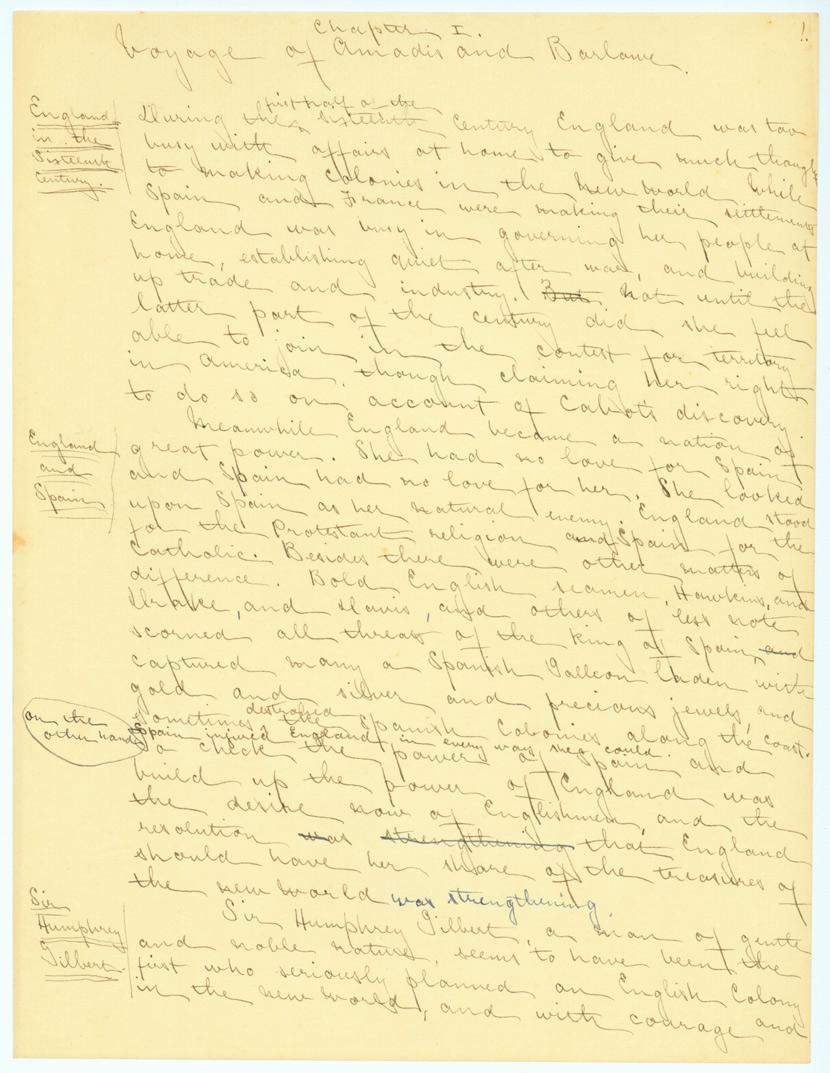 1.
Chapter I.
Voyage of Amadis and Barlowe.
England
in the
Sixteenth
Century.
first half of the
During the sixteenth Century England was too
busy with affairs at home to give much thought
to making Colonies in the New World. While
Spain and France were making their settlements
England was busy in governing her people at
home, establishing quiet after war, and building
up trade and industry. But Not until the
latter part of the century did she feel
able to join in the contest for territory
in America, though claiming her right
to do so on account of Cabot's discovery.
England
and
Spain
Meanwhile England became a nation of
great power. She had no love for Spain
and Spain had no love for her. She looked
upon Spain as her natural enemy. England stood
for the Protestant religion and Spain for the
Catholic. Besides there were other matters of
difference. Bold English seamen, Hawkins, and
Drake, and Davis, and others of less note
scorned all threats of the King of Spain, and
captured many a Spanish Galleon laden with
gold and silver and precious jewels, and
destroyed
sometimes the Spanish Colonies along the coast.
on the
other hand
Spain injured England in every way she could.
To check the power of Spain and
build up the power of England was
the desire now of Englishmen, and the
resolution was strengthening that England
should have her share of the treasures of
the New World was strengthening
Sir
Humphrey
Gilbert.
Sir Humphrey Gilbert, a man of gentle
and noble nature, seems to have been the
first who seriously planned an English Colony
in the New World, and with courage and